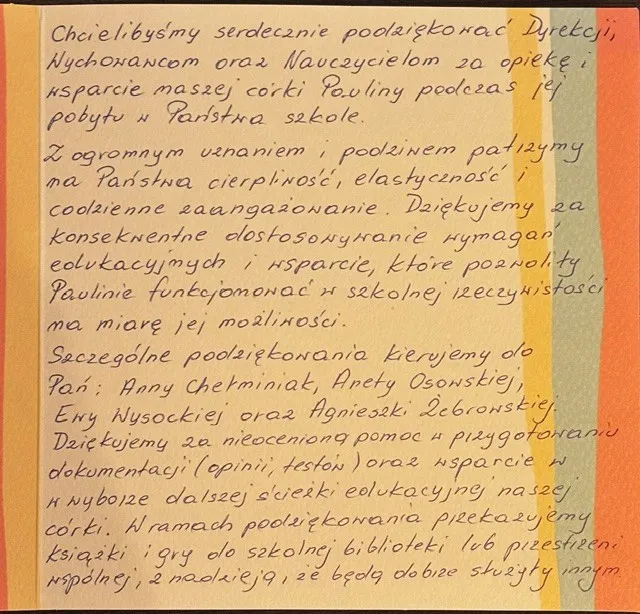 Chcielibyśmy serdecznie podziękować Dyrekcji,
Wychowawcom oraz Nauczycielom za opiekę i
wsparcie naszej córki Pauliny podczas jej
pobytu w Państwa szkole.
Z ogromnym uznaniem i podziwem patrzymy
na Państwa cierpliwość, elastyczność i
codzienne zaangażowanie. Dziękujemy za
konsekwentne dostosowywanie wymagań
edukacyjnych i wsparcie, które pozwoliły
Paulinie funkcjonować w szkolnej rzeczywistości
na miarę jej możliwości.
Szczególne podziękowania kierujemy do
Pań: Anny Chełminiak, Anety Osowskiej,
Ewy Wysockiej oraz Agnieszki Żebrowskiej.
Dziękujemy za nieocenioną pomoc w przygotowaniu
dokumentacji (opinii, testów) oraz wsparcie w
w wyborze dalszej ścieżki edukacyjnej naszej
córki. W ramach podziękowania przekazujemy
książki i gry do szkolnej biblioteki lub przestrzeni
wspólnej, z nadzieją, że będą dobrze służyły innym.